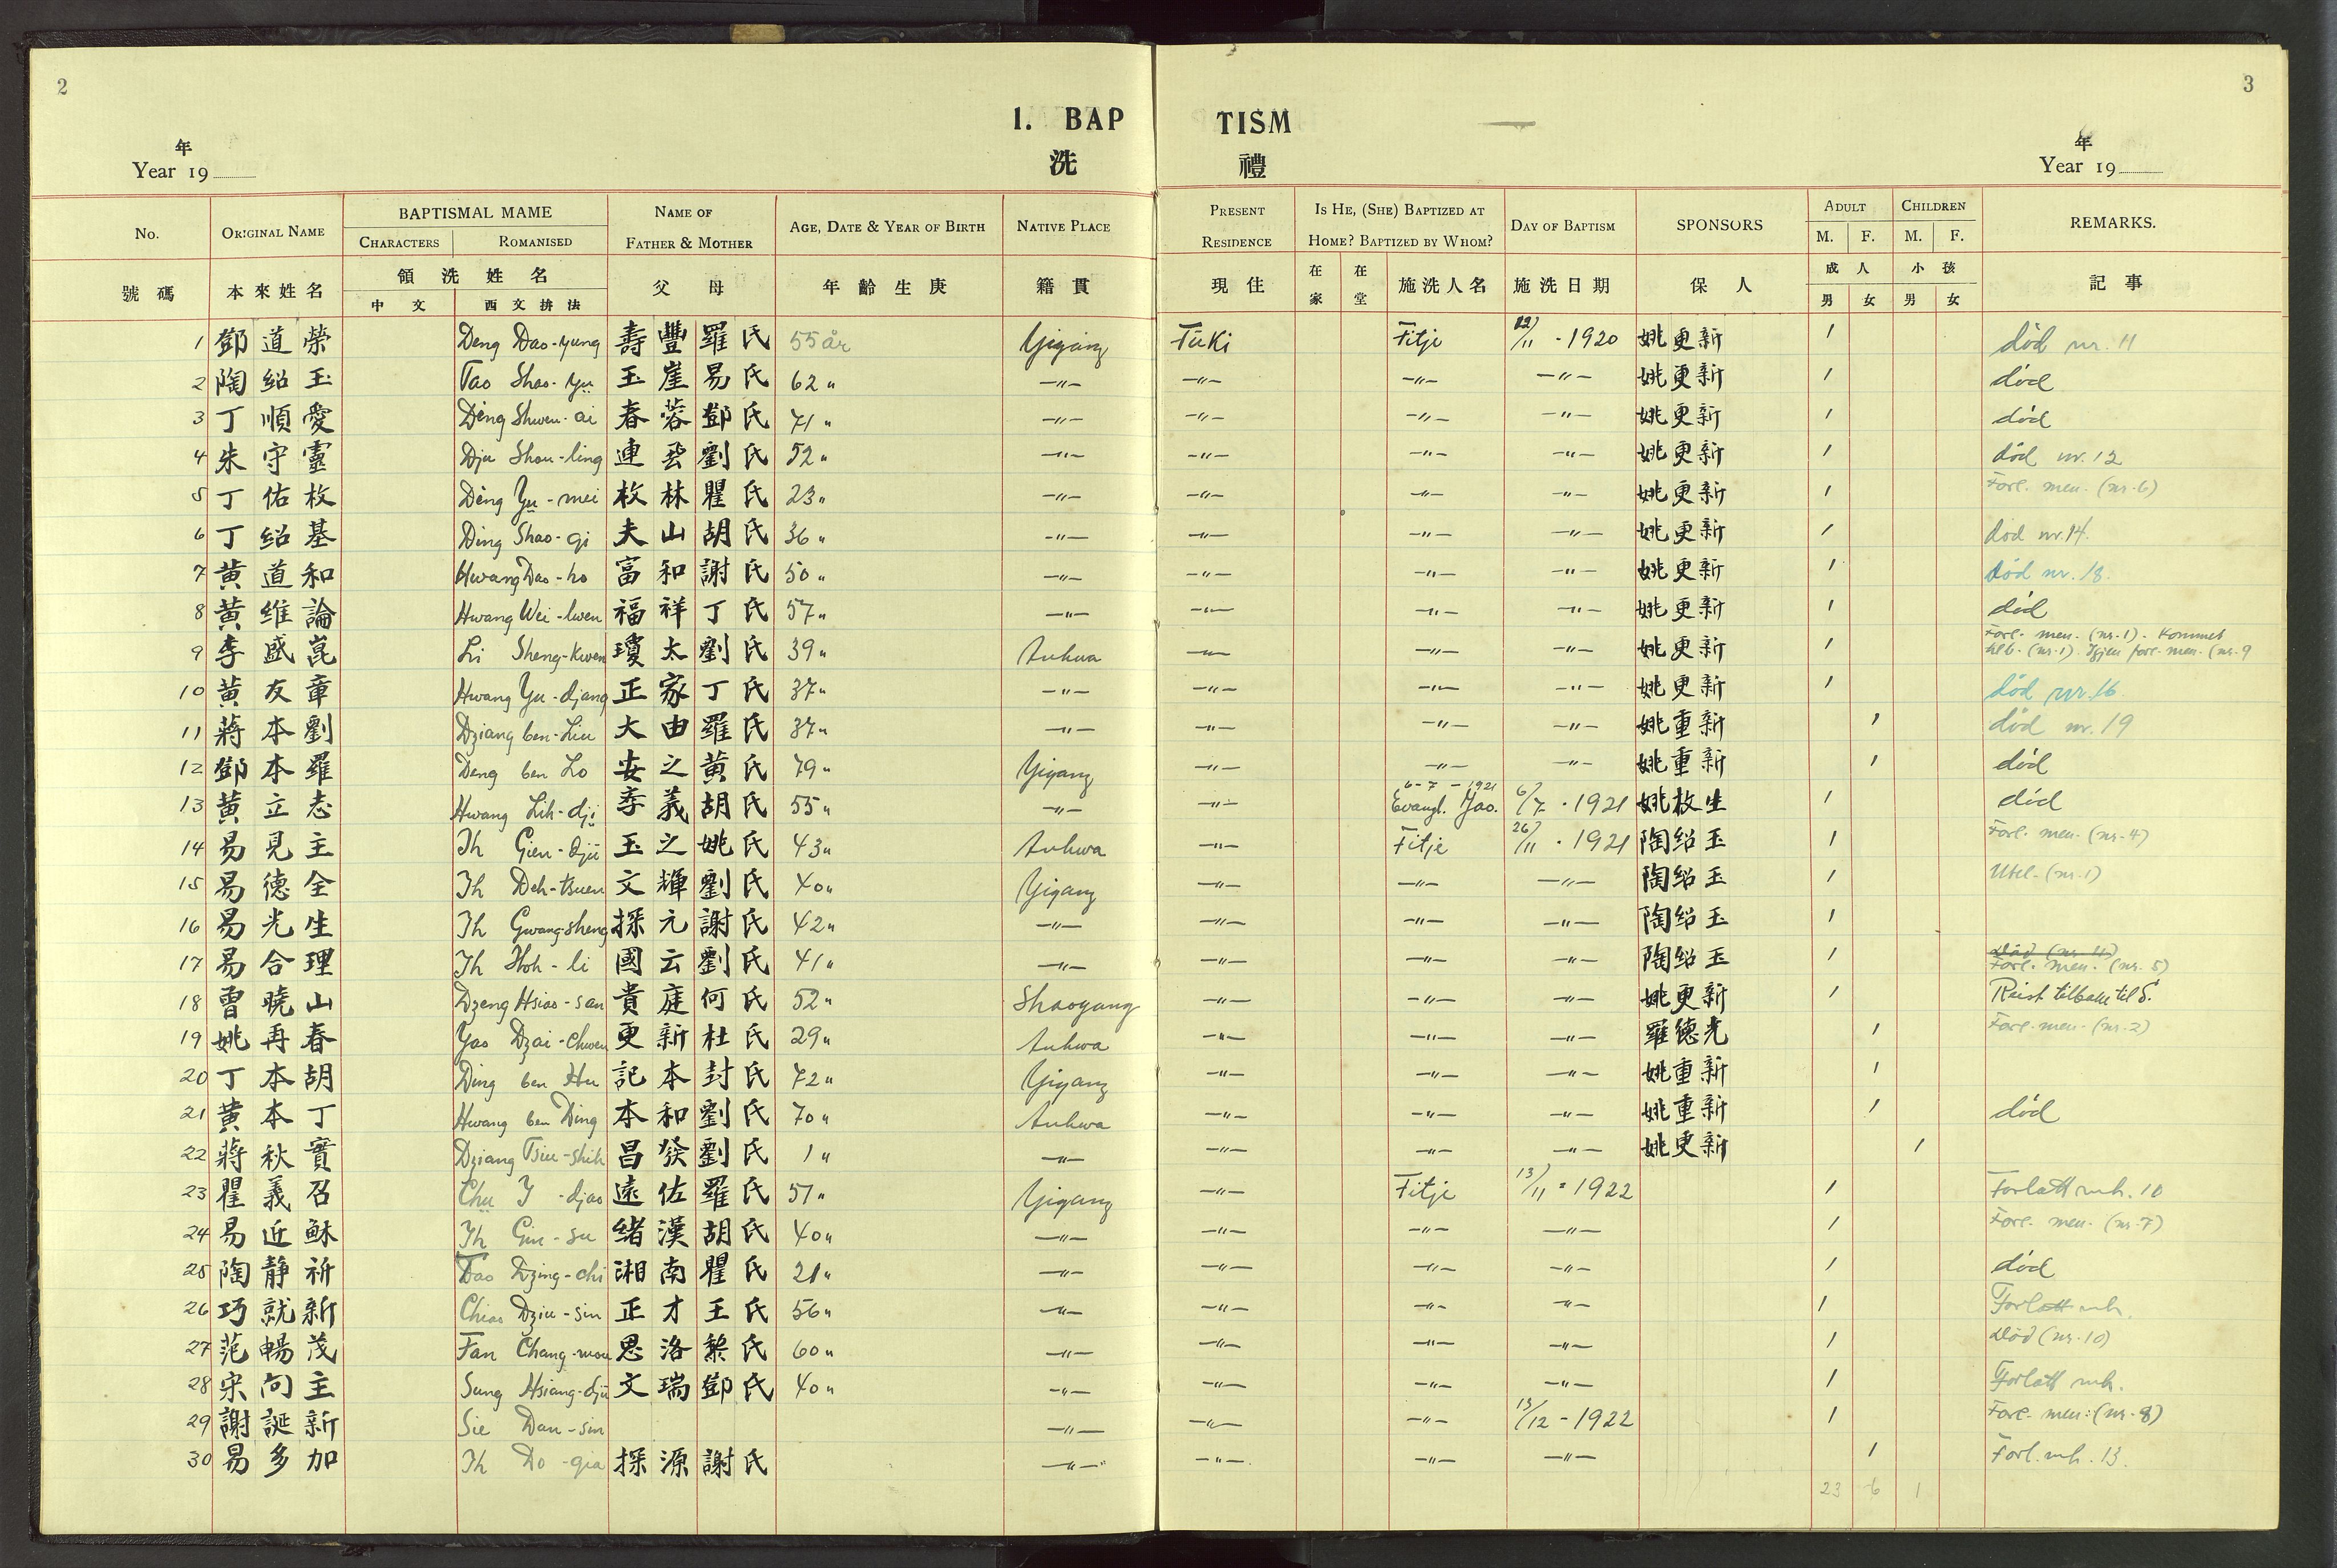 2
3
1. BAP TISM
洗 禮
年
Year 19
年
Year 19
No. ORIGINAL NAME BAPTISMAL MAME NAME OF FATHER & MOTHER AGE, DATE & YEAR OF BIRTH NATIVE PLACE PRESENT RESIDENCE IS HE, (SHE) BAPTIZED AT HOME? BAPTIZED BY WHOM? DAY OF BAPTISM SPONSORS ADULT CHILDREN REMARKS.
CHARACTERS ROMANISED M. F. M. F.
號碼 本來姓名 領洗姓名 父母 年齡生庚 籍貫 現住 在家 在堂 施洗人名 施洗日期 保人 成人 小孩 記事
中文 西文拚法 男 女 男 女
1 鄧道榮 Deng Dao-yung 壽豐羅氏 55 år Yiyang Tuki Fitje 22/11 - 1920 姚更新 1 død nr. 11
2 陶紹玉 Tao Shao-yü 玉崖易氏 62 " -"- -"- -"- -"- 姚更新 1 død
3 丁順愛 Ding Shwen-ai 春蓉鄧氏 71 " -"- -"- -"- -"- 姚更新 1 død
4 朱守靈 Dju Shou-ling 連登劉氏 52 " -"- -"- -"- -"- 姚更新 1 død nr. 12
5 丁佑枚 Ding Yu-mei 枚林瞿氏 23 " -"- -"- -"- -"- 姚更新 1 Forl. men. (nr. 6)
6 丁紹基 Ding Shao-gi 夫山胡氏 36 " -"- -"- -"- -"- 姚更新 1 død nr. 14.
7 黃道和 Hwang Dao-ho 富和謝氏 50 " -"- -"- -"- -"- 姚更新 1 død nr. 18.
8 黃維論 Hwang Wei-lwen 福祥丁氏 57 " -"- -"- -"- -"- 姚更新 1 død
9 李盛崑 Li Sheng-kwen 瓊太劉氏 39 " Anhwa -"- -"- -"- 姚更新 1 Forl. men. (nr. 1). Kommet
tilb. (nr. 1). Igjen forl. men. (nr. 9
10 黃友章 Hwang Yu-djang 正家丁氏 37 " -"- -"- -"- -"- 姚更新 1 død nr. 16
11 蔣本劉 Dziang ben-Liu 大由羅氏 37 " -"- -"- -"- -"- 姚重新 1 død nr. 19
12 鄧本羅 Deng ben Lo 安之黃氏 79 " Yiyang -"- -"- -"- 姚重新 1 død
6-7-1921
13 黃立志 Hwang Lih-dji 季義胡氏 55 " -"- -"- Evangl. Yao. 6/7 - 1921 姚枚生 1 død
14 易見主 Ih Gien-djü 玉之姚氏 43 " Anhwa -"- Fitje 26/11 - 1921 陶紹玉 1 Forl. men. (nr. 4)
15 易德全 Ih Deh-tsuen 文輝劉氏 40 " Yiyang -"- -"- -"- 陶紹玉 1 Utel. (nr. 1)
16 易光生 Ih Gwang-sheng 探元謝氏 42 " -"- -"- -"- -"- 陶紹玉 1
17 易合理 Ih Hoh-li 國云劉氏 41 " -"- -"- -"- -"- 陶紹玉 1 Død (nr. 4)
Forl. men. (nr. 5)
18 曾曉山 Dzeng Hsiao-san 貴庭何氏 52 " Shaoyang -"- -"- -"- 姚更新 1 Reist tilbake til S.
19 姚再春 Yao Dzai-Chwen 更新杜氏 29 " Anhwa -"- -"- -"- 羅德光 1 Forl. men. (nr. 2)
20 丁本胡 Ding ben Hu 記本封氏 72 " Yiyang -"- -"- -"- 姚重新 1
21 黃本丁 Hwang ben Ding 本和劉氏 70 " Anhwa -"- -"- -"- 姚重新 1 død
22 蔣秋實 Dziang Tsiu-shih 昌發劉氏 1 " -"- -"- -"- -"- 姚更新 1
23 瞿義召 Chu Y-djao 遠佐羅氏 57 " Yiyang -"- Fitje 13/11 - 1922 1 Forlatt mh. 10
24 易近穌 Ih Gin-su 緒漢胡氏 40 " -"- -"- -"- -"- 1 Forl. men. (nr. 7)
25 陶静祈 Tao Dzing-chi 湘南瞿氏 21 " -"- -"- -"- -"- 1 død
26 巧就新 Chiao Dziu-sin 正才王氏 56 " -"- -"- -"- -"- 1 Forlatt mh.
27 范暢茂 Fan Chang-mou 思洛黎氏 60 " -"- -"- -"- -"- 1 Død (nr. 10)
28 宋向主 Sung Hsiang-djü 文瑞鄧氏 40 " -"- -"- -"- -"- 1 Forlatt mh.
29 謝誕新 Sie Dan-sin -"- -"- -"- 13/12 - 1922 1 Forl. men. (nr. 8)
30 易多加 Ih Do-gia 探源謝氏 -"- -"- -"- -"- 1 Forl. mh. 13.
23 6 1